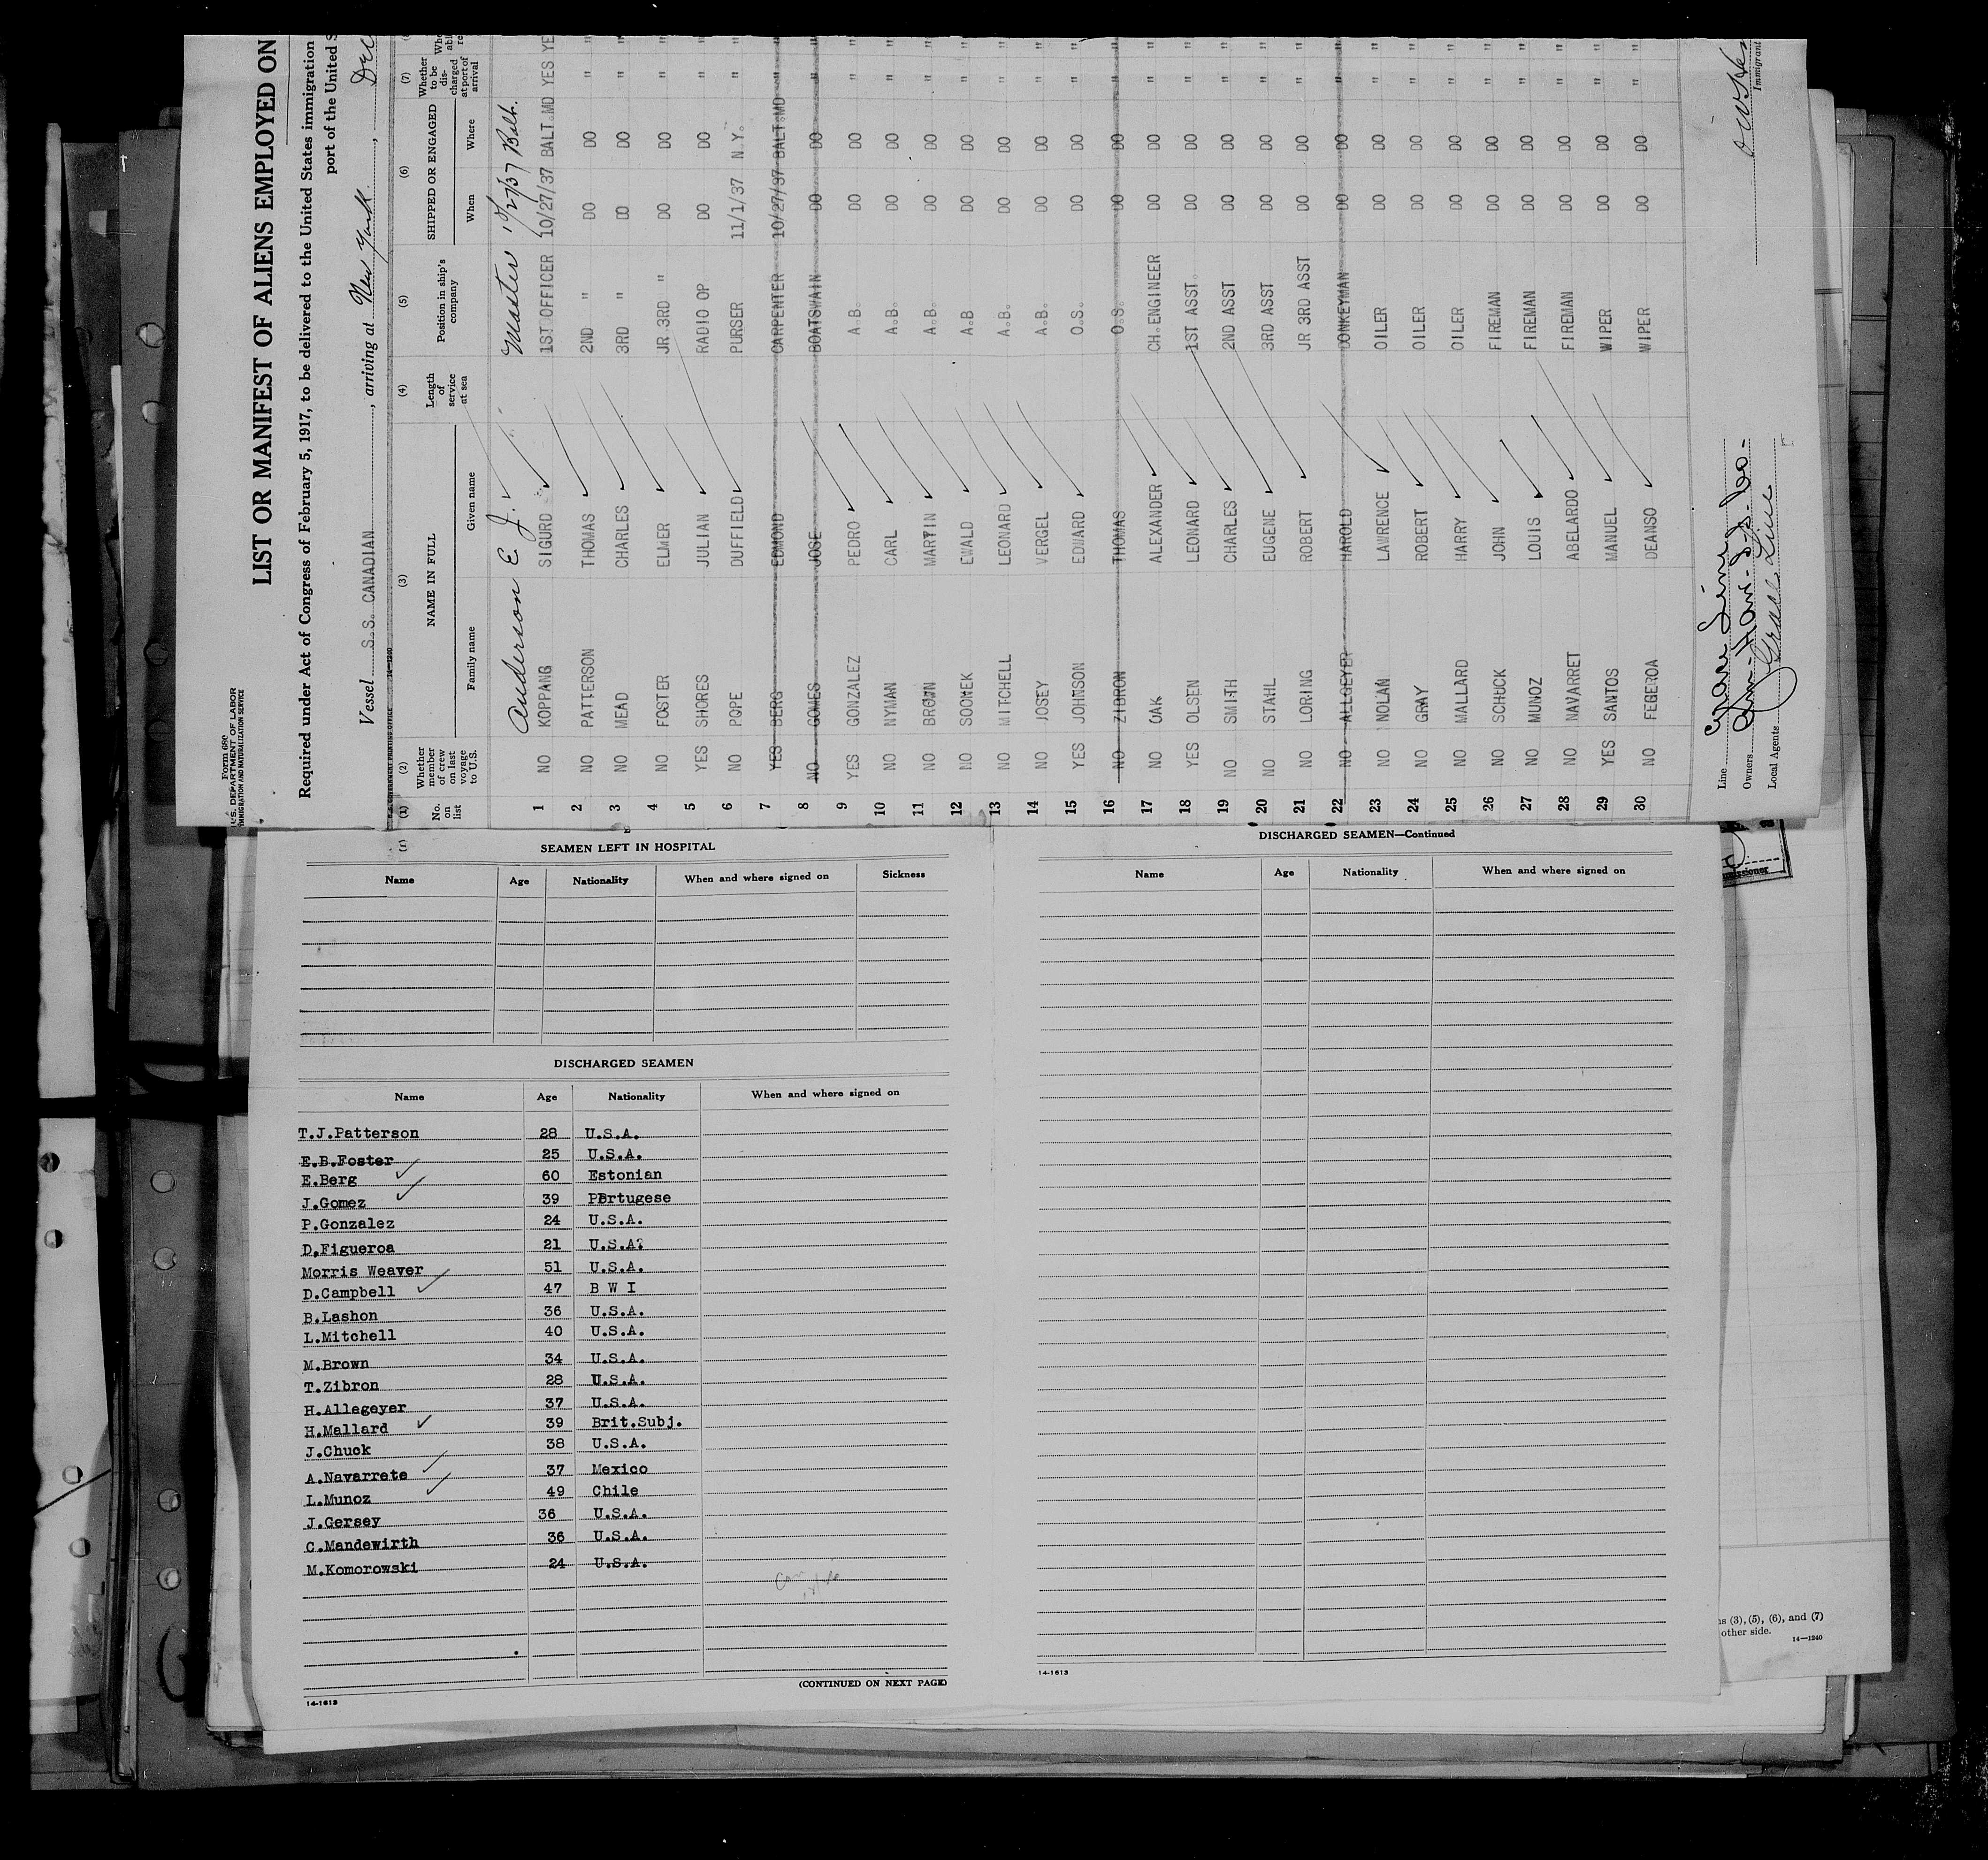 Form 680
U.S. DEPARTMENT OF LABOR
IMMIGRATION AND NATURALIZATION SERVICE
LIST OR MANIFEST OF ALIENS EMPLOYED ON
Required under Act of Congress of February 5, 1917, to be delivered to the United States immigration
port of the United S
Vessel S.S. CANADIAN, arriving at New York, Dec
(1) (2) (3) (4) (5) (6) (7)
No. on list Whether member of crew on last voyage to U.S. NAME IN FULL Length of service at sea Position in ship's company SHIPPED OR ENGAGED Whether to be discharged at port of arrival
Family name Given name When Where
Anderson E J. Master 10/27/37 Balt.
1 NO KOPPANG SIGURD 1ST OFFICER 10/27/37 BALT.MD YES YE
2 NO PATTERSON THOMAS 2ND " DO DO " "
3 NO MEAD CHARLES 3RD " DO DO " "
4 NO FOSTER ELMER JR 3RD " DO DO " "
5 YES SHORES JULIAN RADIO OP DO DO " "
6 NO POPE DUFFIELD PURSER 11/1/37 N.Y. " "
7 YES BERG EDMOND CARPENTER 10/27/37 BALT.MD " "
8 NO GOMES JOSE BOATSWAIN DO DO " "
9 YES GONZALEZ PEDRO A.B. DO DO " "
10 NO NYMAN CARL A.B. DO DO " "
11 NO BROWN MARTIN A.B. DO DO " "
12 NO SOOMEK EWALD A.B DO DO " "
13 NO MITCHELL LEONARD A.B. DO DO " "
14 NO JOSEY VERGEL A.B. DO DO " "
15 YES JOHNSON EDWARD O.S. DO DO " "
16 NO ZIBRON THOMAS O.S. DO DO " "
17 NO OAK ALEXANDER CH.ENGINEER DO DO " "
18 YES OLSEN LEONARD 1ST ASST. DO DO " "
19 NO SMITH CHARLES 2ND ASST DO DO " "
20 NO STAHL EUGENE 3RD ASST DO DO " "
21 NO LORING ROBERT JR 3RD ASST DO DO " "
22 NO ALLGEYER HAROLD DONKEYMAN DO DO " "
23 NO NOLAN LAWRENCE OILER DO DO " "
24 NO GRAY ROBERT OILER DO DO " "
25 NO MALLARD HARRY OILER DO DO " "
26 NO SCHUCK JOHN FIREMAN DO DO " "
27 NO MUNOZ LOUIS FIREMAN DO DO " "
28 NO NAVARRET ABELARDO FIREMAN DO DO " "
29 YES SANTOS MANUEL WIPER DO DO " "
30 NO FEGEROA DEANSO WIPER DO DO " "
Line Grace Line
Owners Am-Haw-S.S.-Co-
Local Agents Grace Line
Immigrant
SEAMEN LEFT IN HOSPITAL
Name Age Nationality When and where signed on Sickness
DISCHARGED SEAMEN
Name Age Nationality When and where signed on
T.J.Patterson 28 U.S.A.
E.B.Foster 25 U.S.A.
E.Berg 60 Estonian
J.Gomez 39 Portugese
P.Gonzalez 24 U.S.A.
D,Figueroa 21 U.S.A?
Morris Weaver 51 U.S.A.
D.Campbell 47 B W I
B.Lashon 36 U.S.A.
L.Mitchell 40 U.S.A.
M.Brown 34 U.S.A.
T.Zibron 28 U.S.A.
H.Allegeyer 37 U.S.A.
H.Mallard 39 Brit.Subj.
J.Chuck 38 U.S.A.
A.Navarrete 37 Mexico
L.Munoz 49 Chile
J.Gersey 36 U.S.A.
C.Mandewirth 36 U.S.A.
M.Komorowski 24 U.S.A.
(CONTINUED ON NEXT PAGE)
14-1613
DISCHARGED SEAMEN—Continued
Name Age Nationality When and where signed on
14-1613
ns (3), (5), (6), and (7)
other side.
14—1240